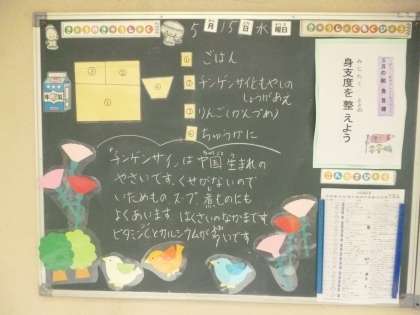 きょうのきゅうしょく
5月15日水曜日
きゅうしょくもくひょう
① ② ③ ④
① ごはん
② チンゲンサイともやしの
しょうがあえ
③ りんご(かんづめ)
④ ちゅうかに
「チンゲンサイ」は中国生まれの
やさいです。くせがないので
いためもの、スープ、煮ものにも
よくあいます。はくさいのなかまです。
ビタミンCとカルシウムが多いです。
5月の給食目標
身支度を整えよう
みじたく ととの
こんだてひょう